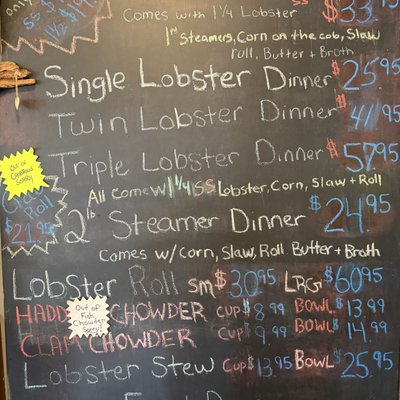 Comes with 1 1/4 Lobster $33.95
1# Steamers, Corn on the cob, Slaw
roll, Butter + Broth
Single Lobster Dinner $25.95
Twin Lobster Dinner $41.95
Triple Lobster Dinner $57.95
All come w/ 1 1/4 SS Lobster, Corn, Slaw + Roll
Out of
Sorry
Roll
$21.95
2 lb Steamer Dinner $24.95
Comes w/ Corn, Slaw, Roll Butter + Broth
Lobster Roll sm $30.95 LRG $60.95
HADD CHOWDER CUP $8.99 BOWL $13.99
Out of
Fish
Chowder
Sorry!
CLAM CHOWDER CUP $9.99 BOWL $14.99
Lobster Stew CUP $13.95 BOWL $25.95